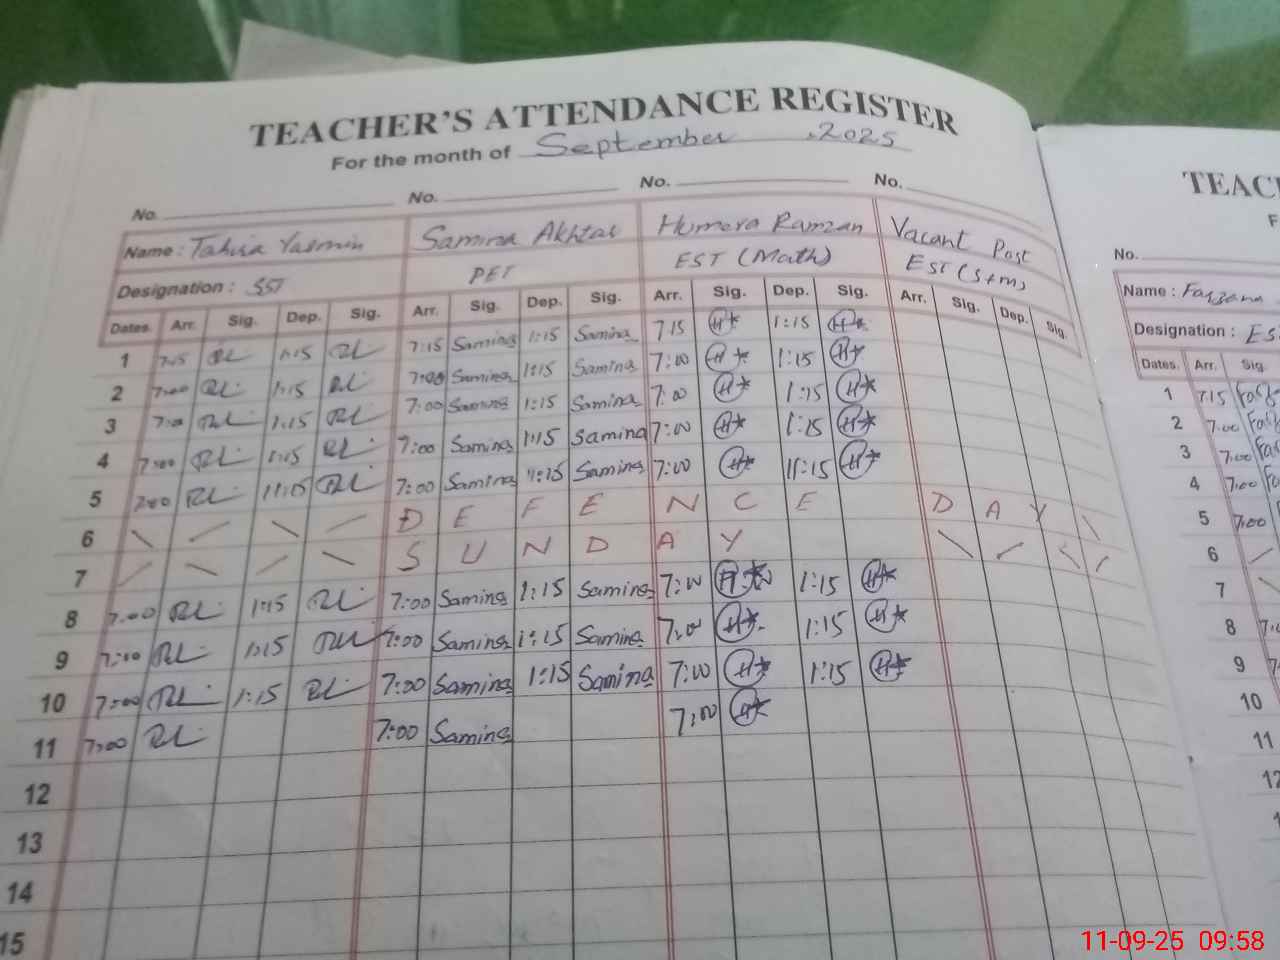 TEACHER'S ATTENDANCE REGISTER
For the month of September 2025
No. No. No. No.
Name : Tahira Yasmin Samina Akhtar Humera Ramzan Vacant Post
Designation : SST PET EST (Math) EST (S+m)
Dates. Arr. Sig. Dep. Sig. Arr. Sig. Dep. Sig. Arr. Sig. Dep. Sig. Arr. Sig. Dep. Sig.
1 7:15 1:15 7:15 Samina 1:15 Samina 7:15 H* 1:15 H*
2 7:00 1:15 7:00 Samina 1:15 Samina 7:00 H* 1:15 H*
3 7:00 1:15 7:00 Samina 1:15 Samina 7:00 H* 1:15 H*
4 7:00 1:15 7:00 Samina 1:15 Samina 7:00 H* 1:15 H*
5 7:00 11:15 7:00 Samina 1:15 Samina 7:00 H* 11:15 H*
6 D E F E N C E D A Y
7 S U N D A Y
8 7:00 1:15 7:00 Samina 1:15 Samina 7:00 H* 1:15 H*
9 7:00 1:15 7:00 Samina 1:15 Samina 7:00 H* 1:15 H*
10 7:00 1:15 7:00 Samina 1:15 Samina 7:00 H* 1:15 H*
11 7:00 7:00 Samina 7:00 H*
12
13
14
15
TEAC
F
No.
Name : Farzana
Designation : ES
Dates. Arr. Sig.
1 7:15
2 7:00
3 7:00
4 7:00
5 7:00
6
7
8
9
10
11
12
11-09-25 09:58